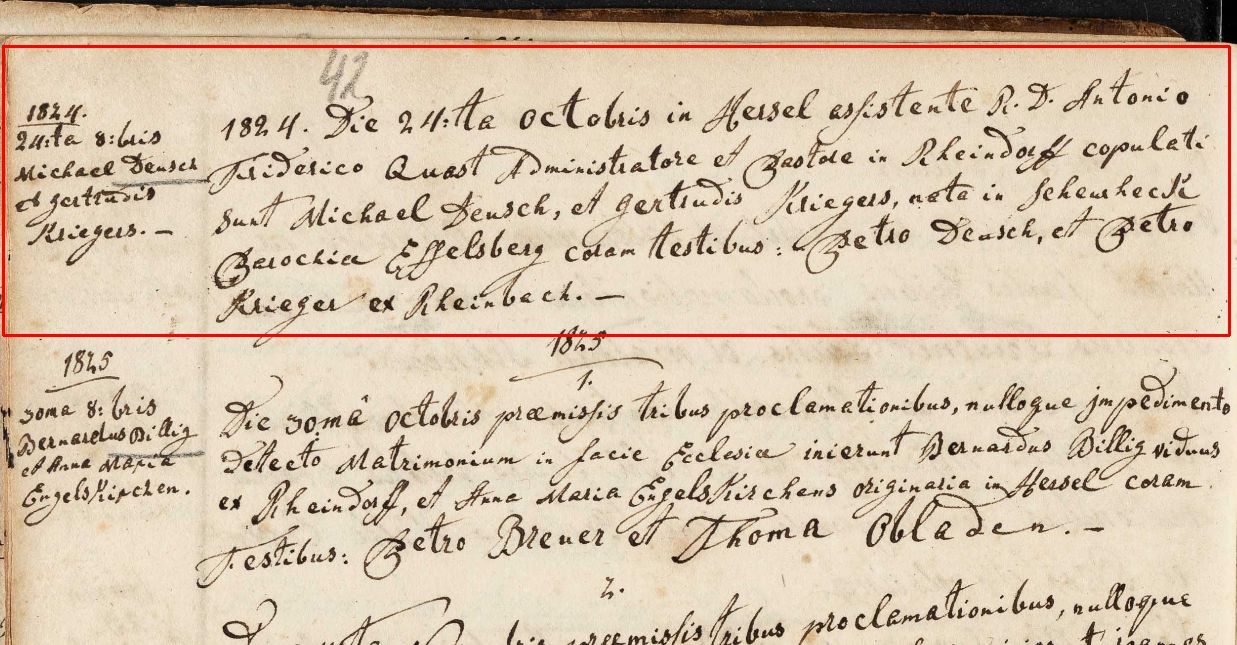 42
1824.
24:ta 8:bris
Michael Deusch
et gertrudis
Kriegers. —
1824. Die 24:ta octobris in Hersel assistente R. D. Antonio
Friderico Quast Administratore et Pastore in Rheindorff copulati
sunt Michael Deusch, et gertrudis Kriegers, nata in scheurheck
Parochiæ Effelsberg coram testibus: Petro Deusch, et Petro
Krieger ex Rheinbach. —
1825
1825
1.
30ma 8:bris
Bernardus Billig
et Anna Maria
EngelsKirchen.
Die 30mâ octobris præmissis tribus proclamationibus, nulloque jmpedimento
detecto Matrimonium in facie Ecclesiæ inierunt Bernardus Billig viduus
ex Rheindorff, et Anna Maria EngelsKirchens originaria in Hersel coram
Testibus: Petro Breuer et Thoma Obladen. —
2.
præmissis tribus proclamationibus, nulloque